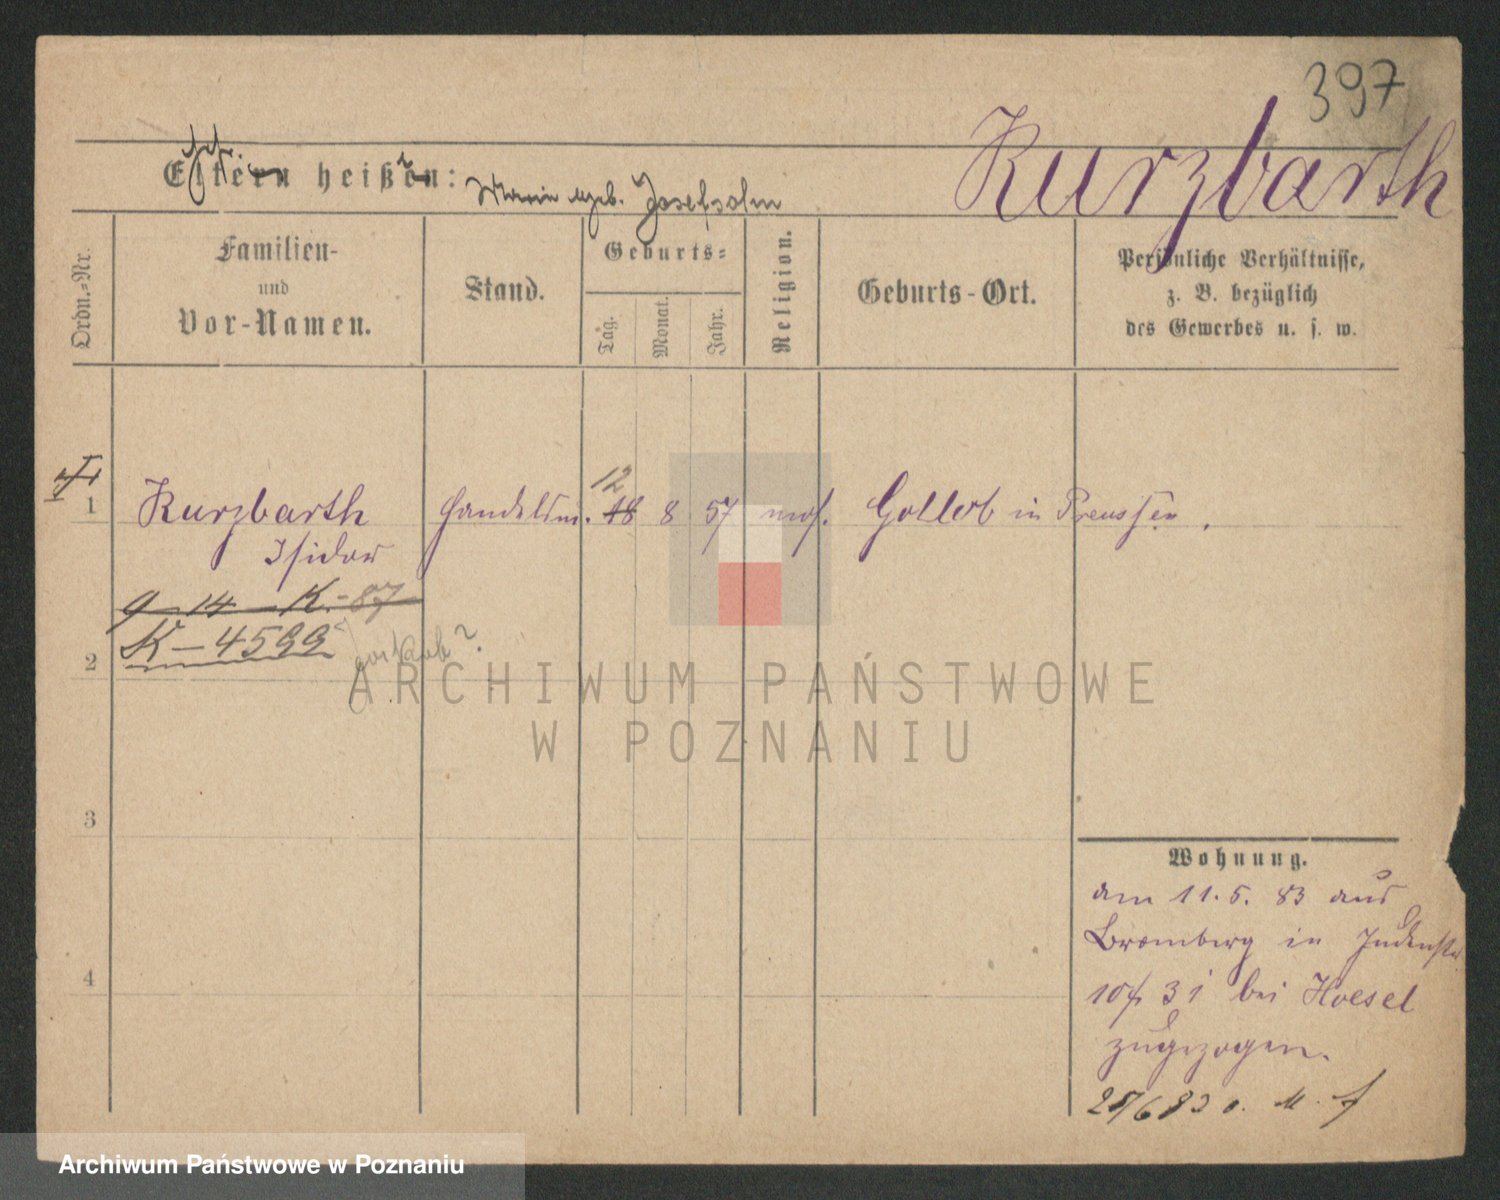 397
Kurzbarth
Eltern heißen: geb. Josefsohn
Ordn.-Nr.
Familien-
und
Vor-Namen.
Stand.
Geburts-
Tag.
Monat.
Jahr.
Religion.
Geburts-Ort.
Persönliche Verhältnisse,
z. B. bezüglich
des Gewerbes u. s. w.
12
1 Kurzbarth Handelsm. 18 8 57 mos. Gollub in Preussen.
Isidor
9-14-K.-87
K-4599
2
3
4
Wohnung.
am 11.5.83 aus
Bromberg in Judenstr
10/ 31 bei Hoesel
zugezogen.
ARCHIWUM PAŃSTWOWE
W POZNANIU
Archiwum Państwowe w Poznaniu